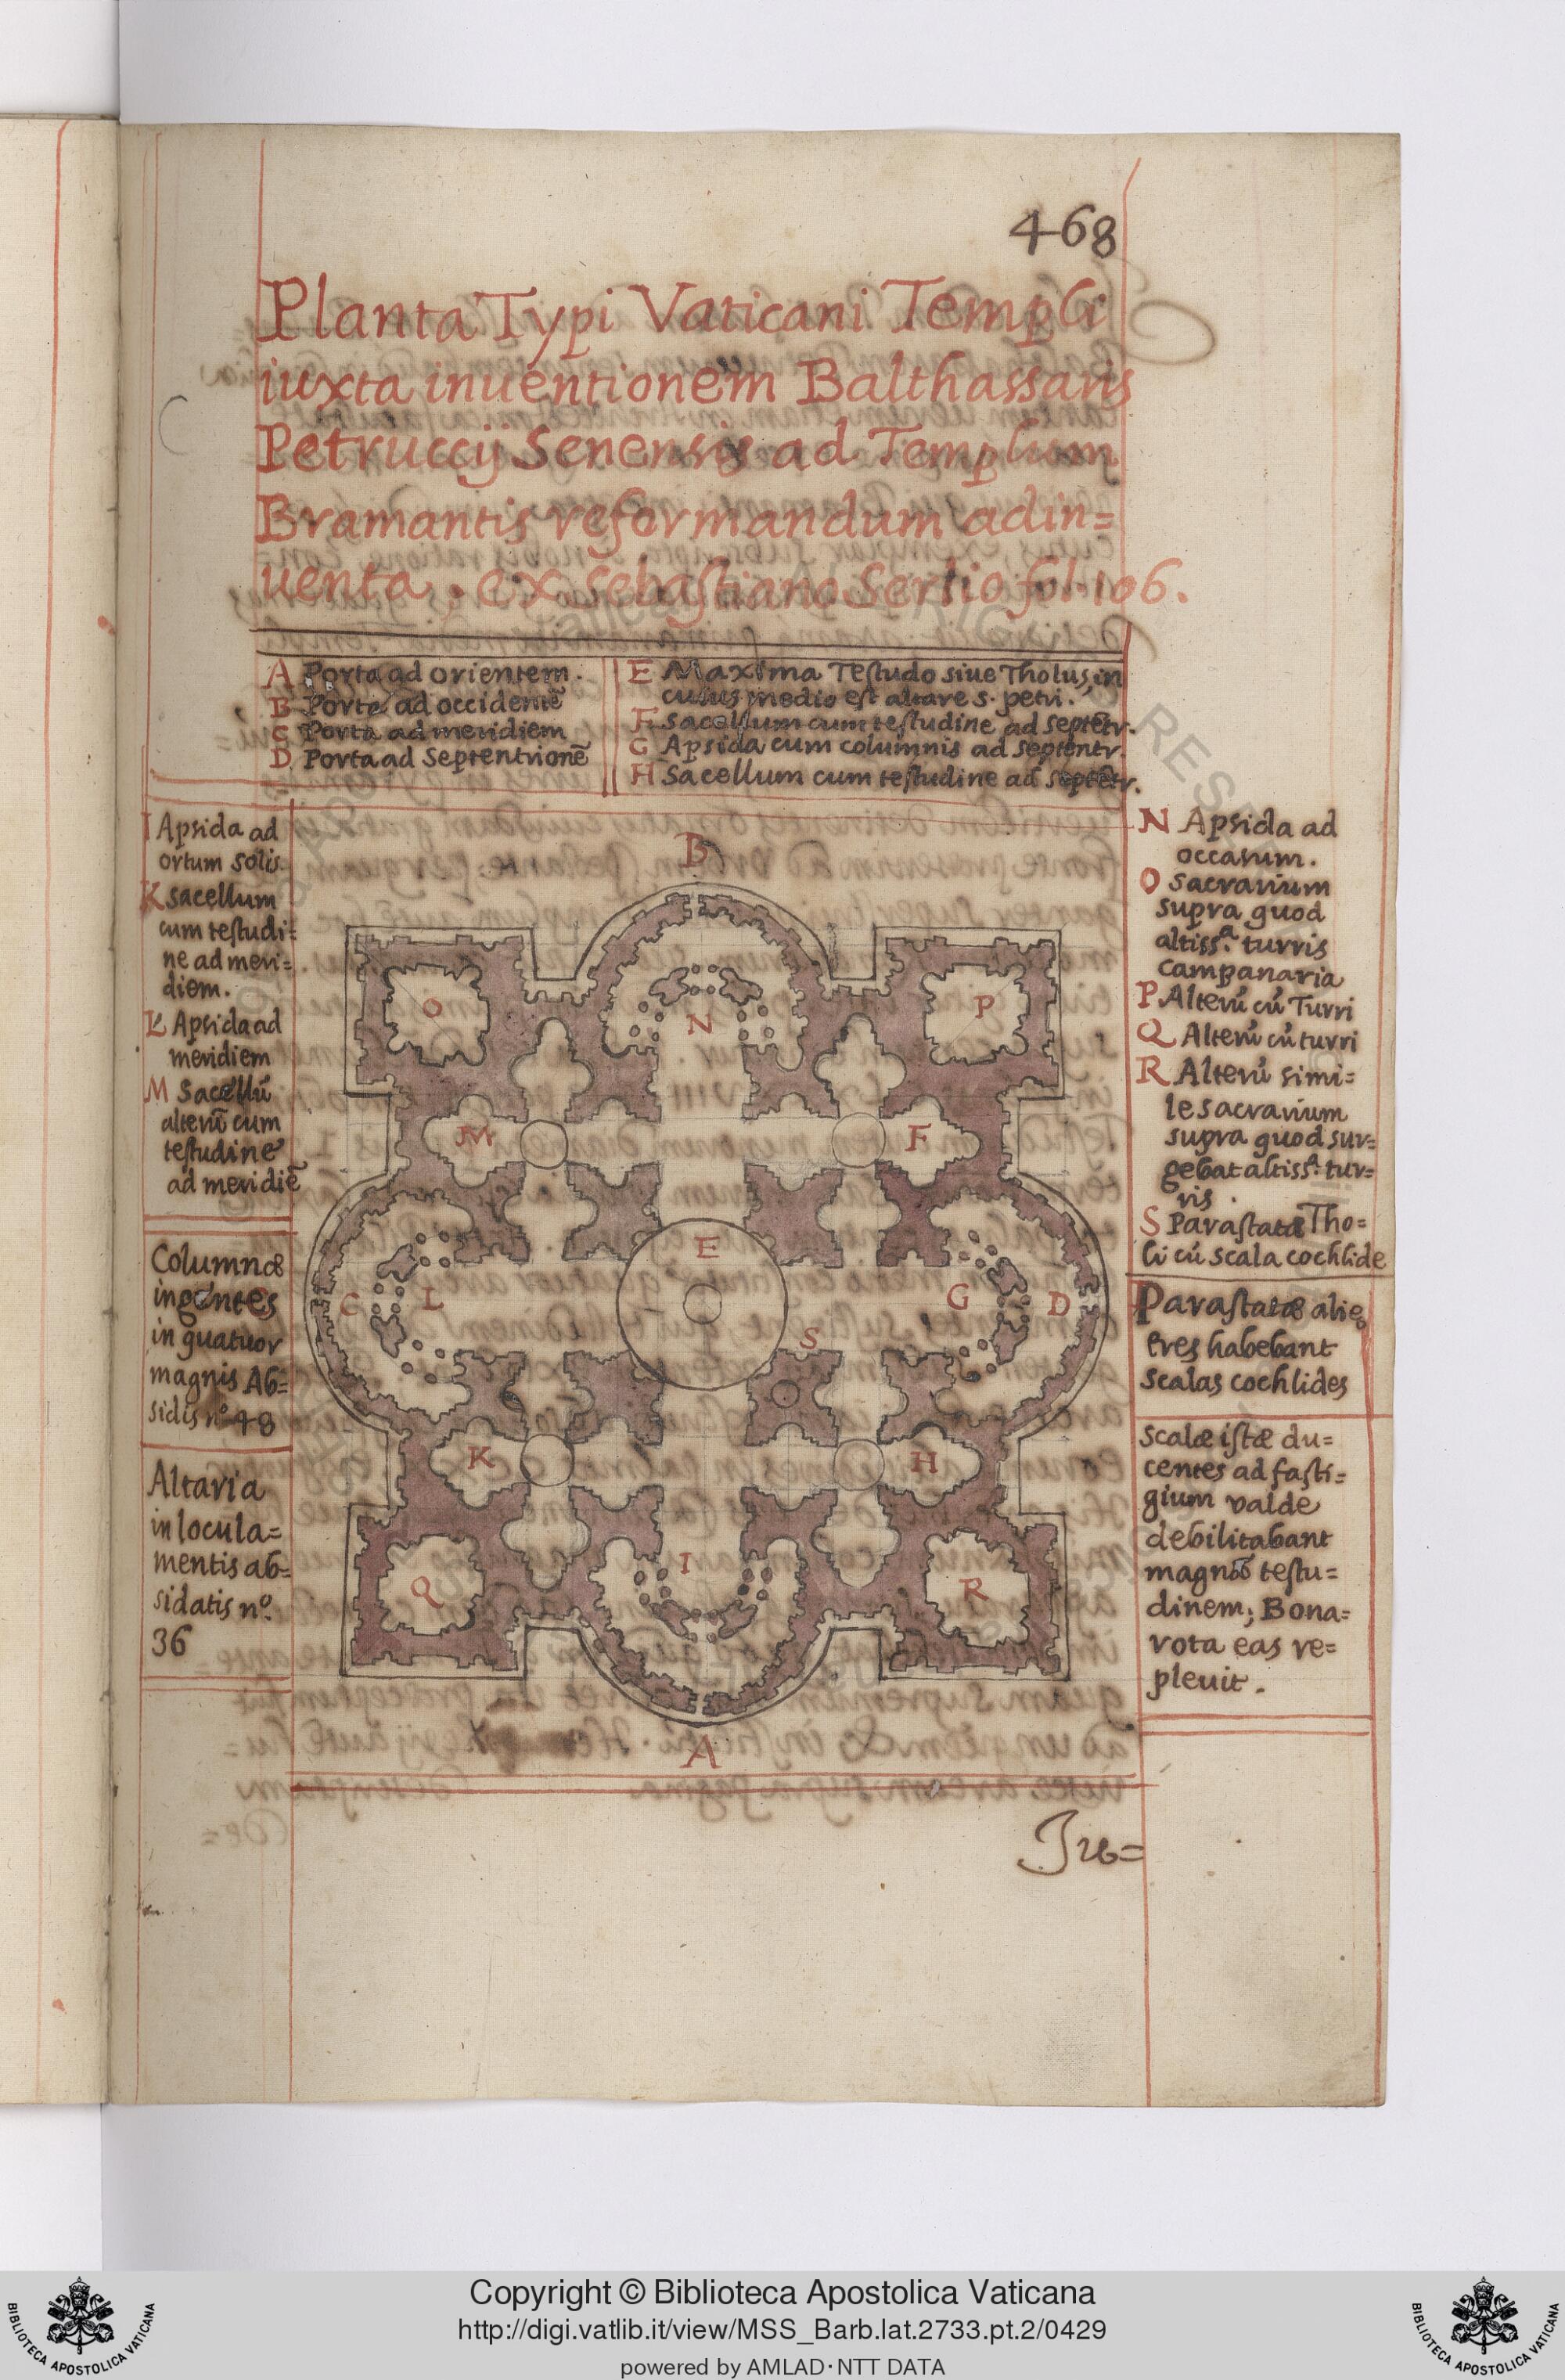 468
Planta Typi Vaticani Templi
iuxta inuentionem Balthassaris
Petruccij Senensis ad Templum
Bramantis reformandum adin=
uenta. ex Sebastiano Serlio fol. 106.
A Porta ad orientem.
B Porta ad occidentē
C Porta ad meridiem
D Porta ad Septentrionē
E Maxima Testudo siue Tholus, in
cuius medio est altare S. petri.
F Sacellum cum testudine ad septētr.
G Apsida cum columnis ad septentr.
H Sacellum cum testudine ad septētr.
I Apsida ad
ortum Solis.
K Sacellum
cum testudi=
ne ad meri=
diem.
L Apsida ad
meridiem
M Sacellū
alterū cum
testudine
ad meridiē
Columnæ
ingentes
in quatuor
magnis Ab=
sidis nº 48
Altaria
in locula=
mentis ab=
sidatis nº.
36
B
O
N
P
M
F
E
C
L
G
D
S
K
H
I
Q
R
A
N Apsida ad
occasum.
O Sacrarium
supra quod
altissª. turris
campanaria
P Alterū cū Turri
Q Alterū cū turri
R Alterū simi=
le sacrarium
supra quod sur=
gebat altissª. tur=
ris.
S Parastatæ Tho=
li cū scala cochlide
Parastatæ aliæ
tres habebant
scalas cochlides
Scalæ istæ du=
centes ad fasti=
gium valde
debilitabant
testu=
dinem; Bona=
rota eas re=
pleuit.
Copyright © Biblioteca Apostolica Vaticana
http://digi.vatlib.it/view/MSS_Barb.lat.2733.pt.2/0429
powered by AMLAD·NTT DATA
BIBLIOTECA APOSTOLICA VATICANA
BIBLIOTECA APOSTOLICA VATICANA